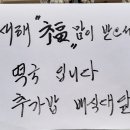 새해 "福" 많이 받으세
떡국 입니다
추가밥 배식대 앞